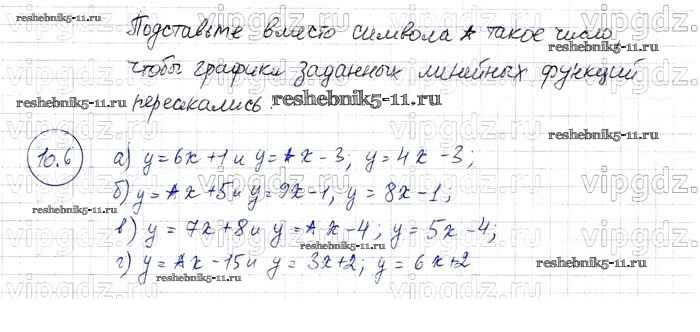 Подставьте вместо символа * такое число,
чтобы графики заданных линейных функций
пересекались.
10.6
а) y = 6x + 1 и y = *x - 3; y = 4x - 3;
б) y = *x + 5 и y = 9x - 1, y = 8x - 1;
в) y = 7x + 8 и y = *x - 4; y = 5x - 4;
г) y = *x - 15 и y = 3x + 2; y = 6x + 2
reshebnik5-11.ru
reshebnik5-11.ru
reshebnik5-11.ru
reshebnik5-11.ru
reshebnik5-11.ru
reshebnik5-11.ru
vipgdz.com